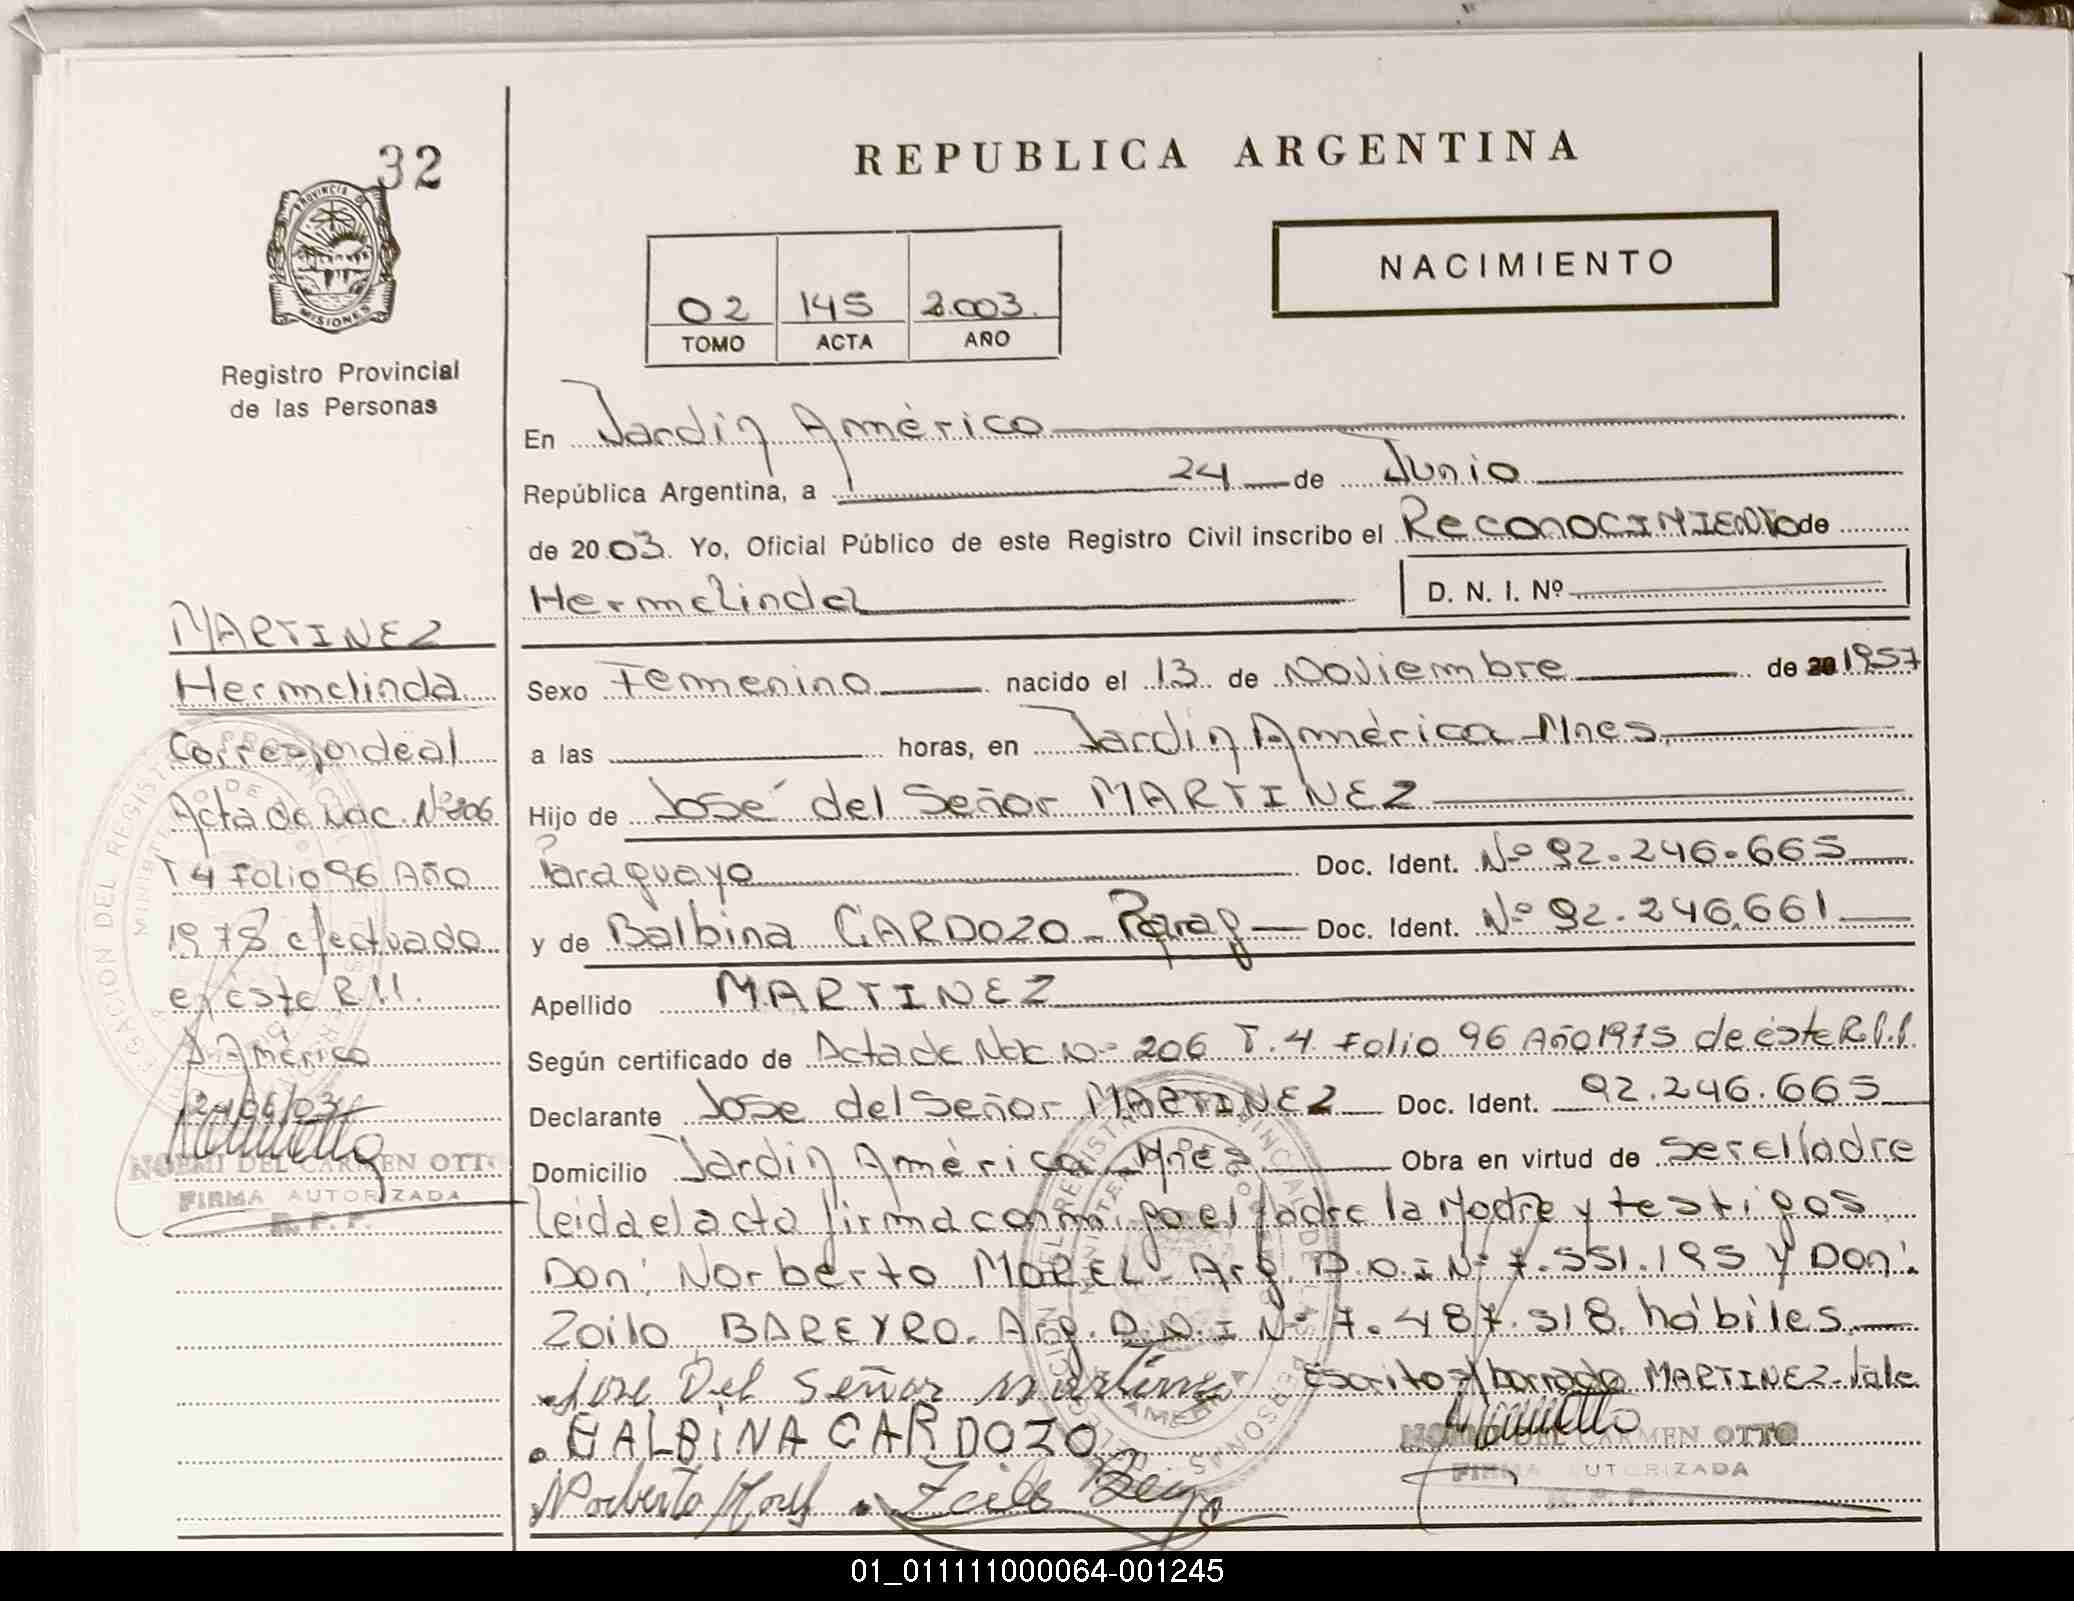 32
PROVINCIA DE
MISIONES
Registro Provincial
de las Personas
REPUBLICA ARGENTINA
NACIMIENTO
02 145 2.003.
TOMO ACTA AÑO
En Jardin América
República Argentina, a 24 de Junio
de 2003. Yo, Oficial Público de este Registro Civil inscribo el ReconocIMIENTO de
Hermelinda
D. N. I. Nº
Sexo Femenino nacido el 13 de Noviembre de 20 1957
a las horas, en Jardin América Mnes.
Hijo de José del Señor MARTINEZ
Paraguayo Doc. Ident. Nº 92.246.665
y de Balbina CARDOZO - Parag Doc. Ident. Nº 92.246.661
Apellido MARTINEZ
Según certificado de Acta de Nac Nº 206 T. 4 Folio 96 Año 1975 de éste R.P.P.
Declarante Jose del Señor MARTINEZ Doc. Ident. 92.246.665
Domicilio Jardin América Mnes Obra en virtud de ser el Padre
leida el acta firma conmigo el Padre la Madre y testigos
Don: Norberto MOREL - Arg. D.N.I Nº 7.551.195 y Don:
Zoilo BAREYRO. Arg. D.N.I Nº 7.487.318. hábiles.
Jose Del Señor Martinez Escrito s/borrado MARTINEZ - Vale
BALBiNA CARDOZO
NOEMI DEL CARMEN OTTO
FIRMA AUTORIZADA
R. P. P.
Norberto Morel Zoilo
MARTINEZ
Hermelinda
Corresponde al
Acta de Nac. Nº 206
T 4 Folio 96 Año
1975 efectuado
en este R.P.P.
J. América
24/06/03
NOEMI DEL CARMEN OTTO
FIRMA AUTORIZADA
R. P. P.
01_011111000064-001245